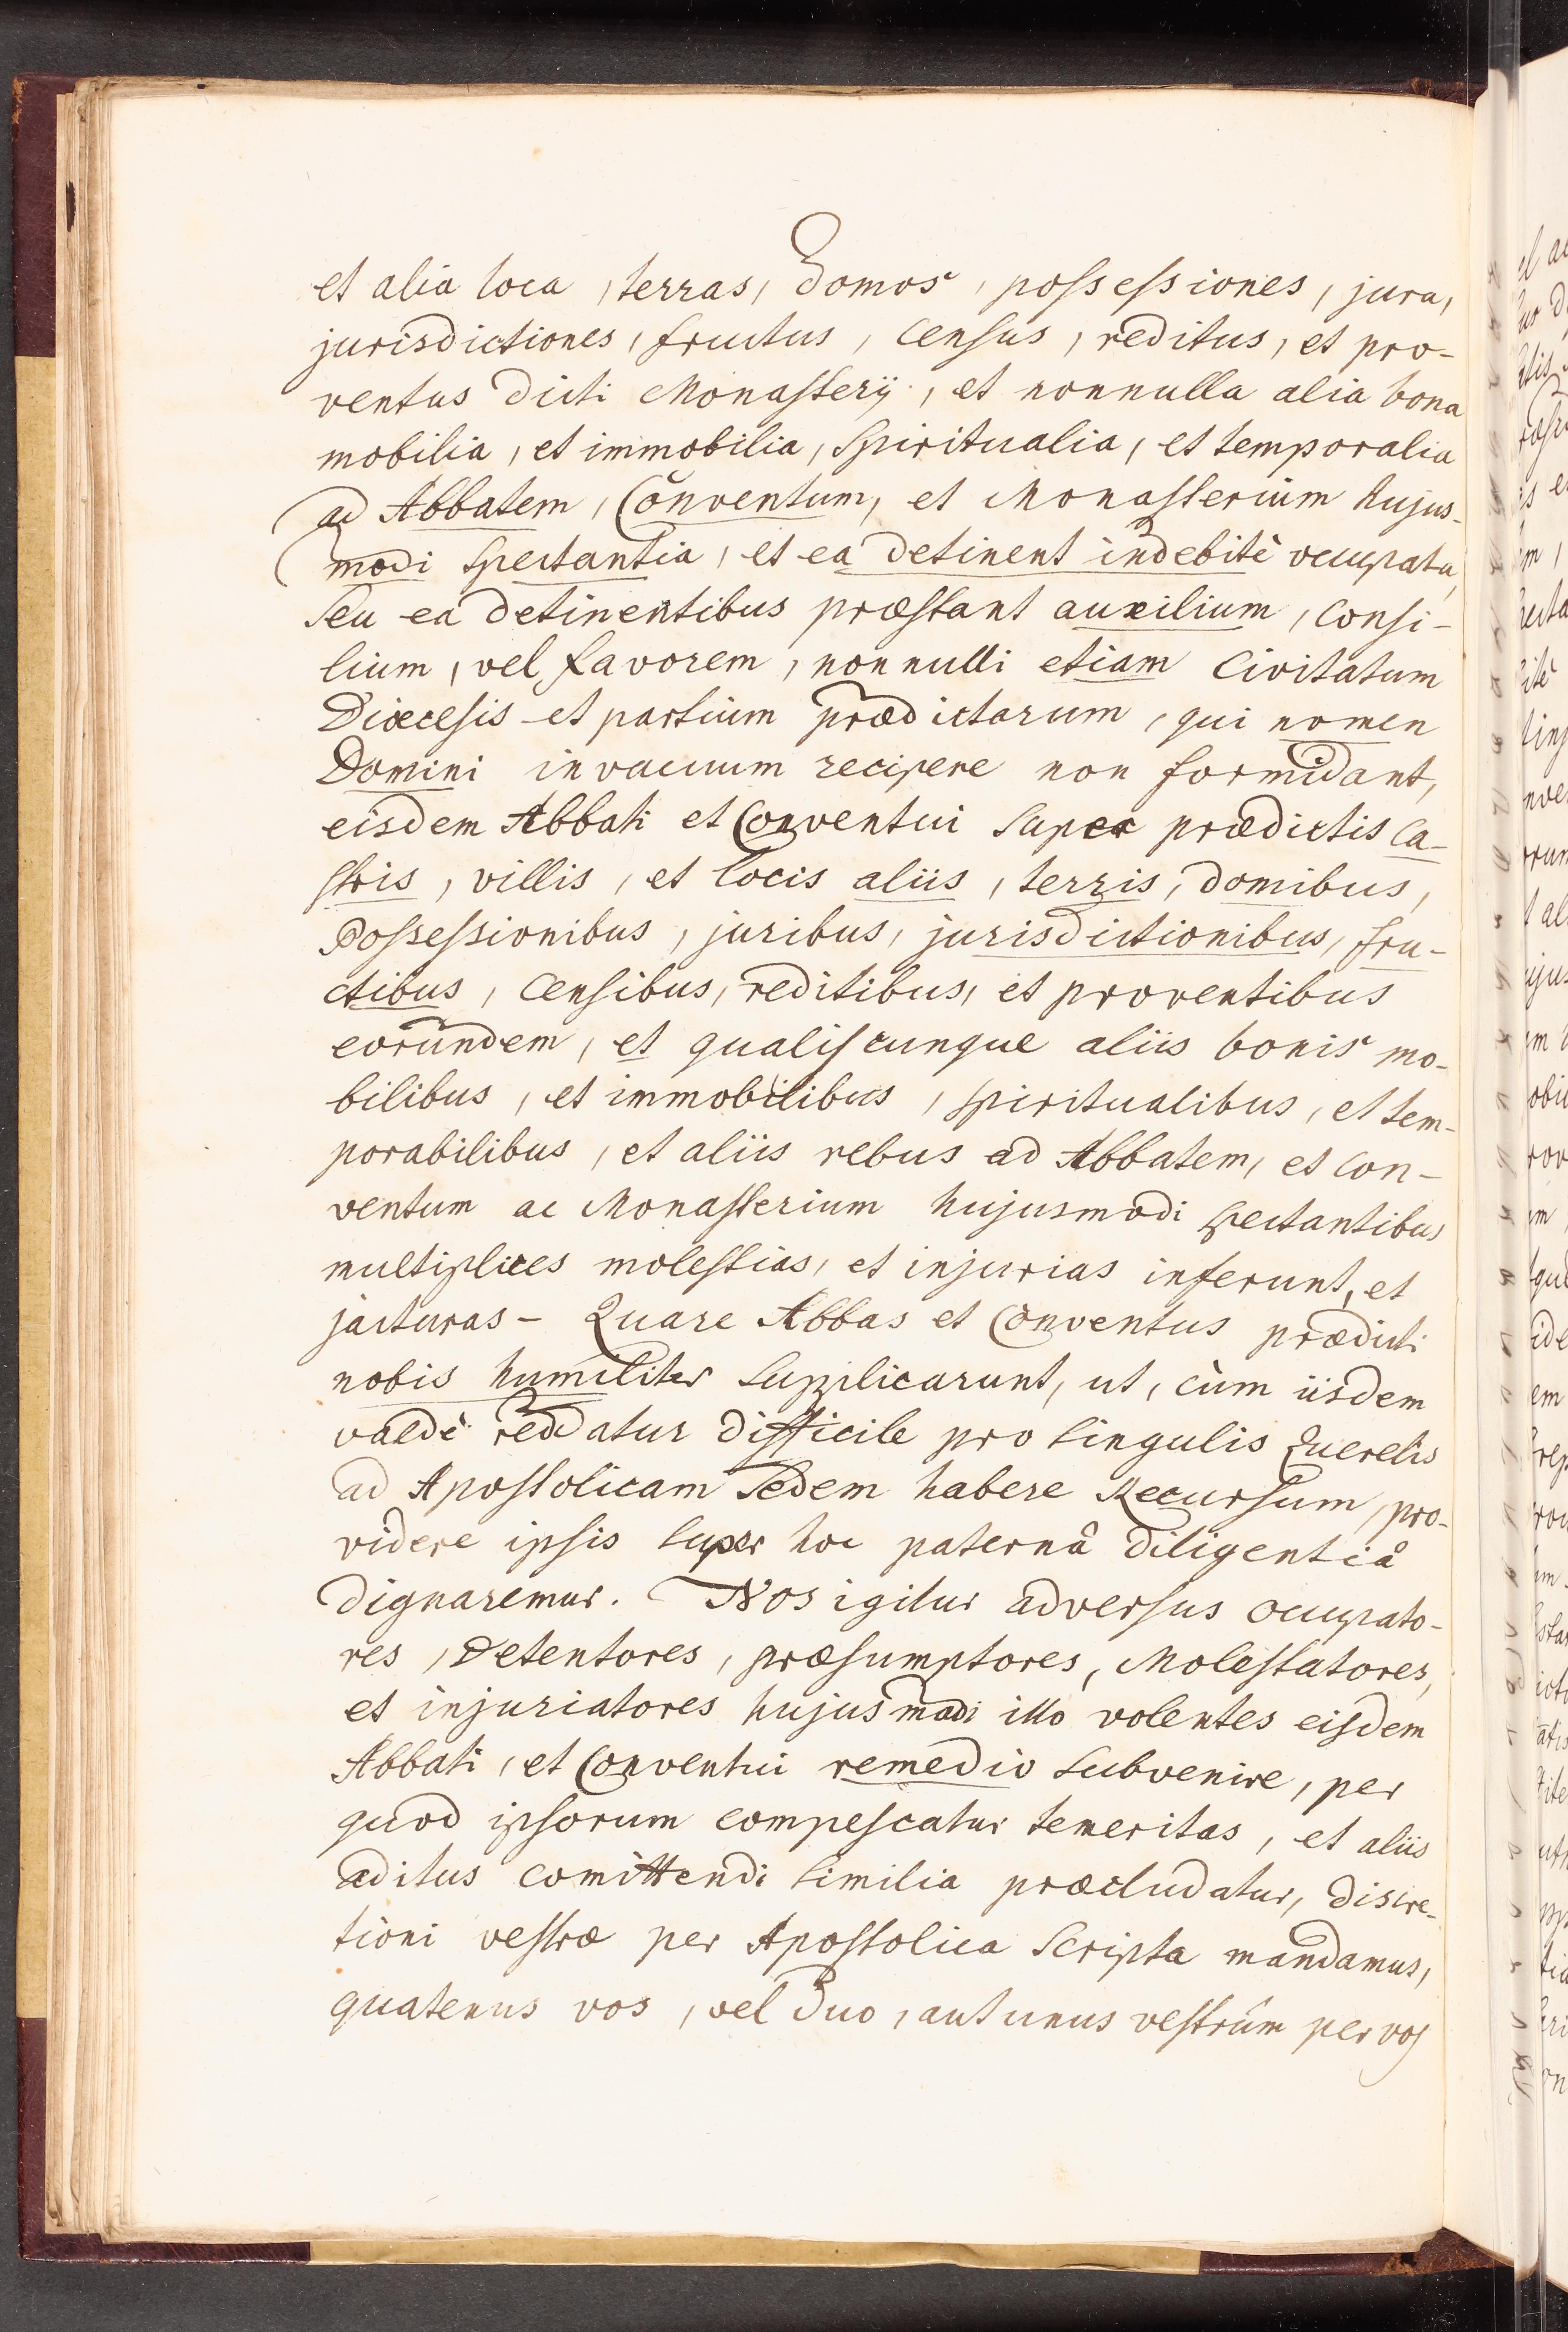 et alia loca, terras, domos, possessiones, jura,
jurisdictiones, fructus, census, reditus, et pro-
ventus dicti Monasterÿ, et nonnulla alia bona
mobilia, et immobilia, spiritualia, et temporalia
ad Abbatem, Conventum, et Monasterium hujus-
modi spectantia, et ea detinent indebitè occupata,
seu ea detinentibus præstant auxilium, consi-
lium, vel favorem, nonnulli etiam Civitatum
Diœcesis et partium prædictarum, qui nomen
Domini in vacuum recipere non formidant,
eisdem Abbati et Conventui super prædictis ca-
stris, villis, et locis aliis, terris, domibus,
Possessionibus, juribus, jurisdictionibus, fru-
ctibus, censibus, reditibus, et proventibus
eorundem, et qualiscunque aliis bonis mo-
bilibus, et immobilibus, spiritualibus, et tem-
porabilibus, et aliis rebus ad Abbatem, et Con-
ventum ac Monasterium hujusmodi spectantibus
multiplices molestias, et injurias inferunt, et
jacturas – Quare Abbas et Conventus prædicti
nobis humiliter supplicarunt, ut, cùm iisdem
valdè reddatur difficile pro singulis Querelis
ad Apostolicam Sedem habere Recursum, pro-
videre ipsis super hoc paternâ diligentiâ
dignaremur. Nos igitur adversus occupato-
res, Detentores, præsumptores, Molestatores,
et injuriatores hujusmodi illo volentes eisdem
Abbati, et Conventui remedio subvenire, per
quod ipsorum compescatur temeritas, et aliis
aditus comittendi similia præcludatur, discre-
tioni vestræ per Apostolica Scripta mandamus,
quatenus vos, vel duo, aut unus vestrûm per vos